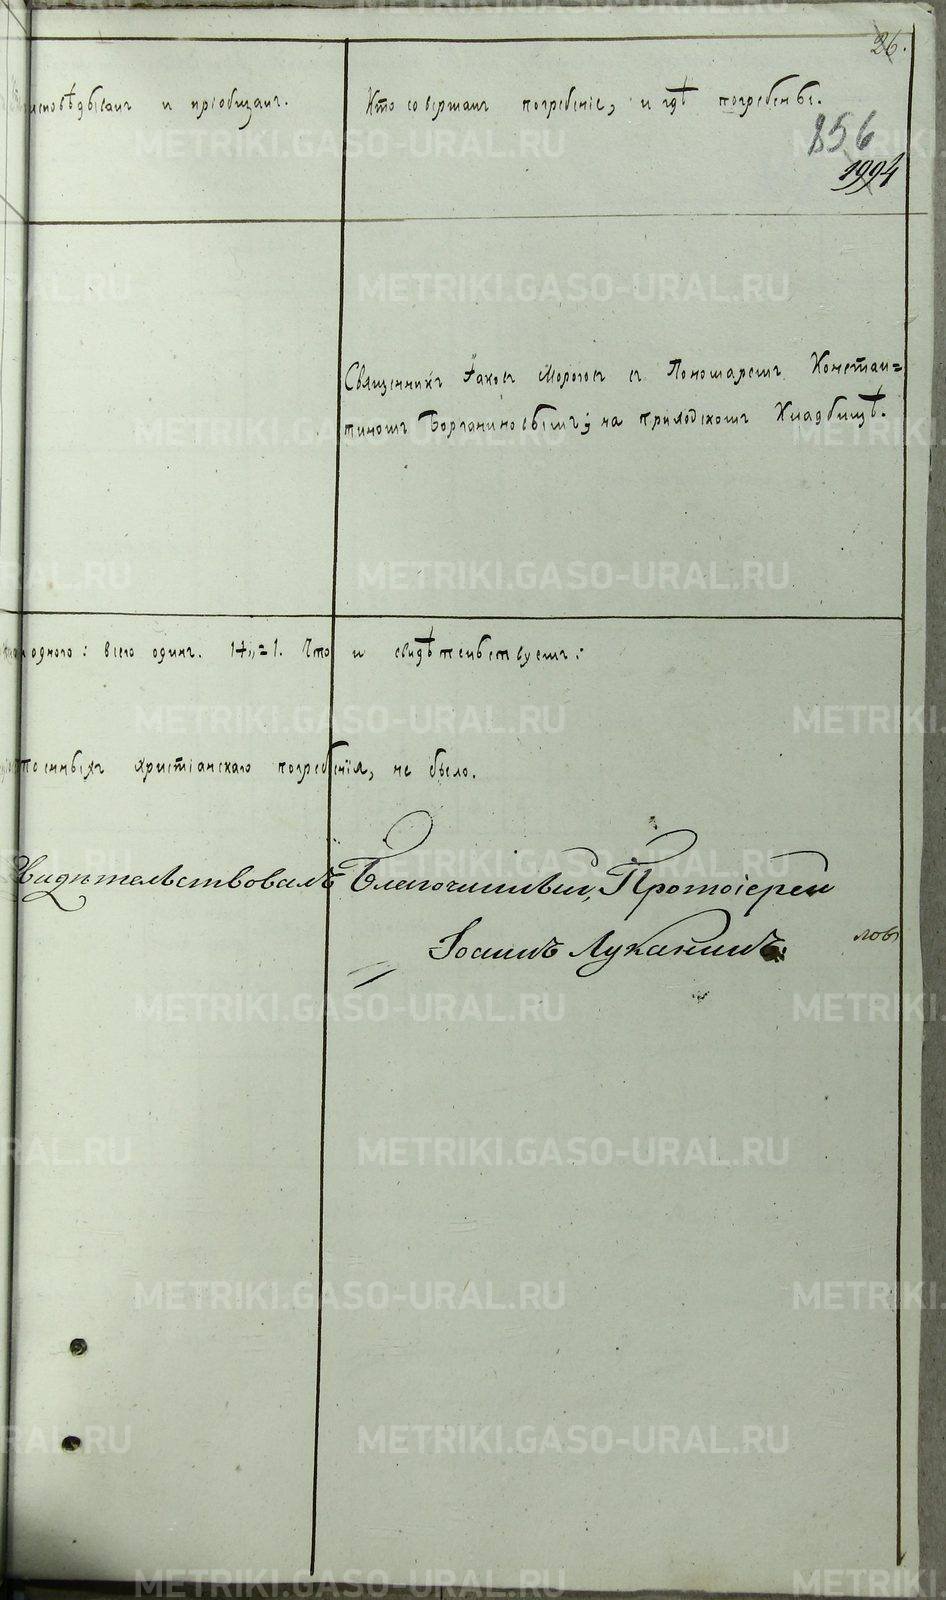 26.
исповѣдывалъ и пріобщалъ.
Кто совершалъ погребеніе, и гдѣ погребены.
856
1994
Священникъ Іаковъ Морозовъ съ Пономаремъ Констан=
тиномъ на приходскомъ Кладбищѣ.
одного: всего одинъ. Что и свидѣтельствуемъ:
христіанскаго погребенія, не было.
Свидѣтельствовалъ Благочинный, Протоіерей
Іоаннъ Луканинъ.
ловъ
METRIKI.GASO-URAL.RU